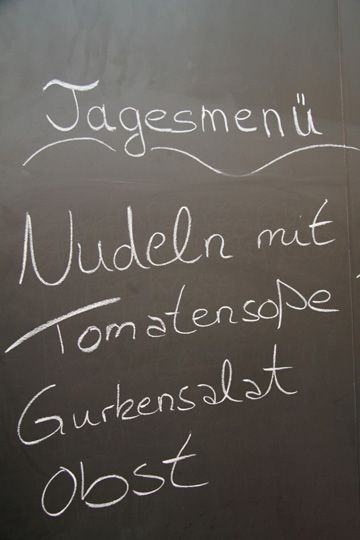 Tagesmenü
Nudeln mit
Tomatensoße
Gurkensalat
Obst